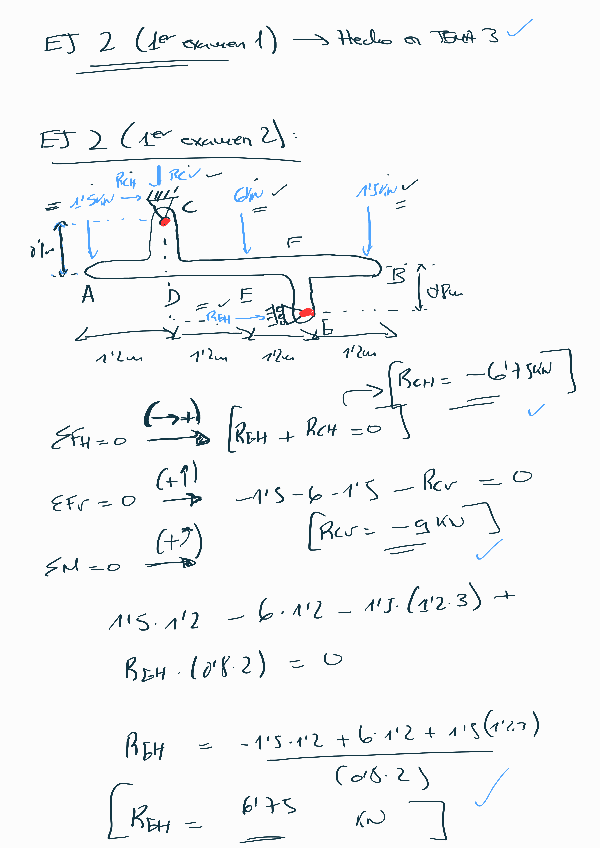 EJ 2 (1er examen 1) → Hecho en TEMA 3 ✓
EJ 2 (1er examen 2):
RCH RCV ✓
= 1'5KN → C 6KN ✓ 1'5KN ✓
F
A D E B
REH → E 0'8m
1'2m 1'2m 1'2m 1'2m
[RCH = -6'75KN] ✓
ΣFH=0 (→+) [REH + RCH = 0]
ΣFV=0 (+↑) -1'5-6-1'5 - RCV = 0
[RCV = -9KN] ✓
ΣM=0 (+↻)
1'5·1'2 - 6·1'2 - 1'5·(1'2·3) +
REH·(0'8·2) = 0
REH = -1'5·1'2 + 6·1'2 + 1'5(1'2·3)
(0'8·2)
[REH = 6'75 KN] ✓